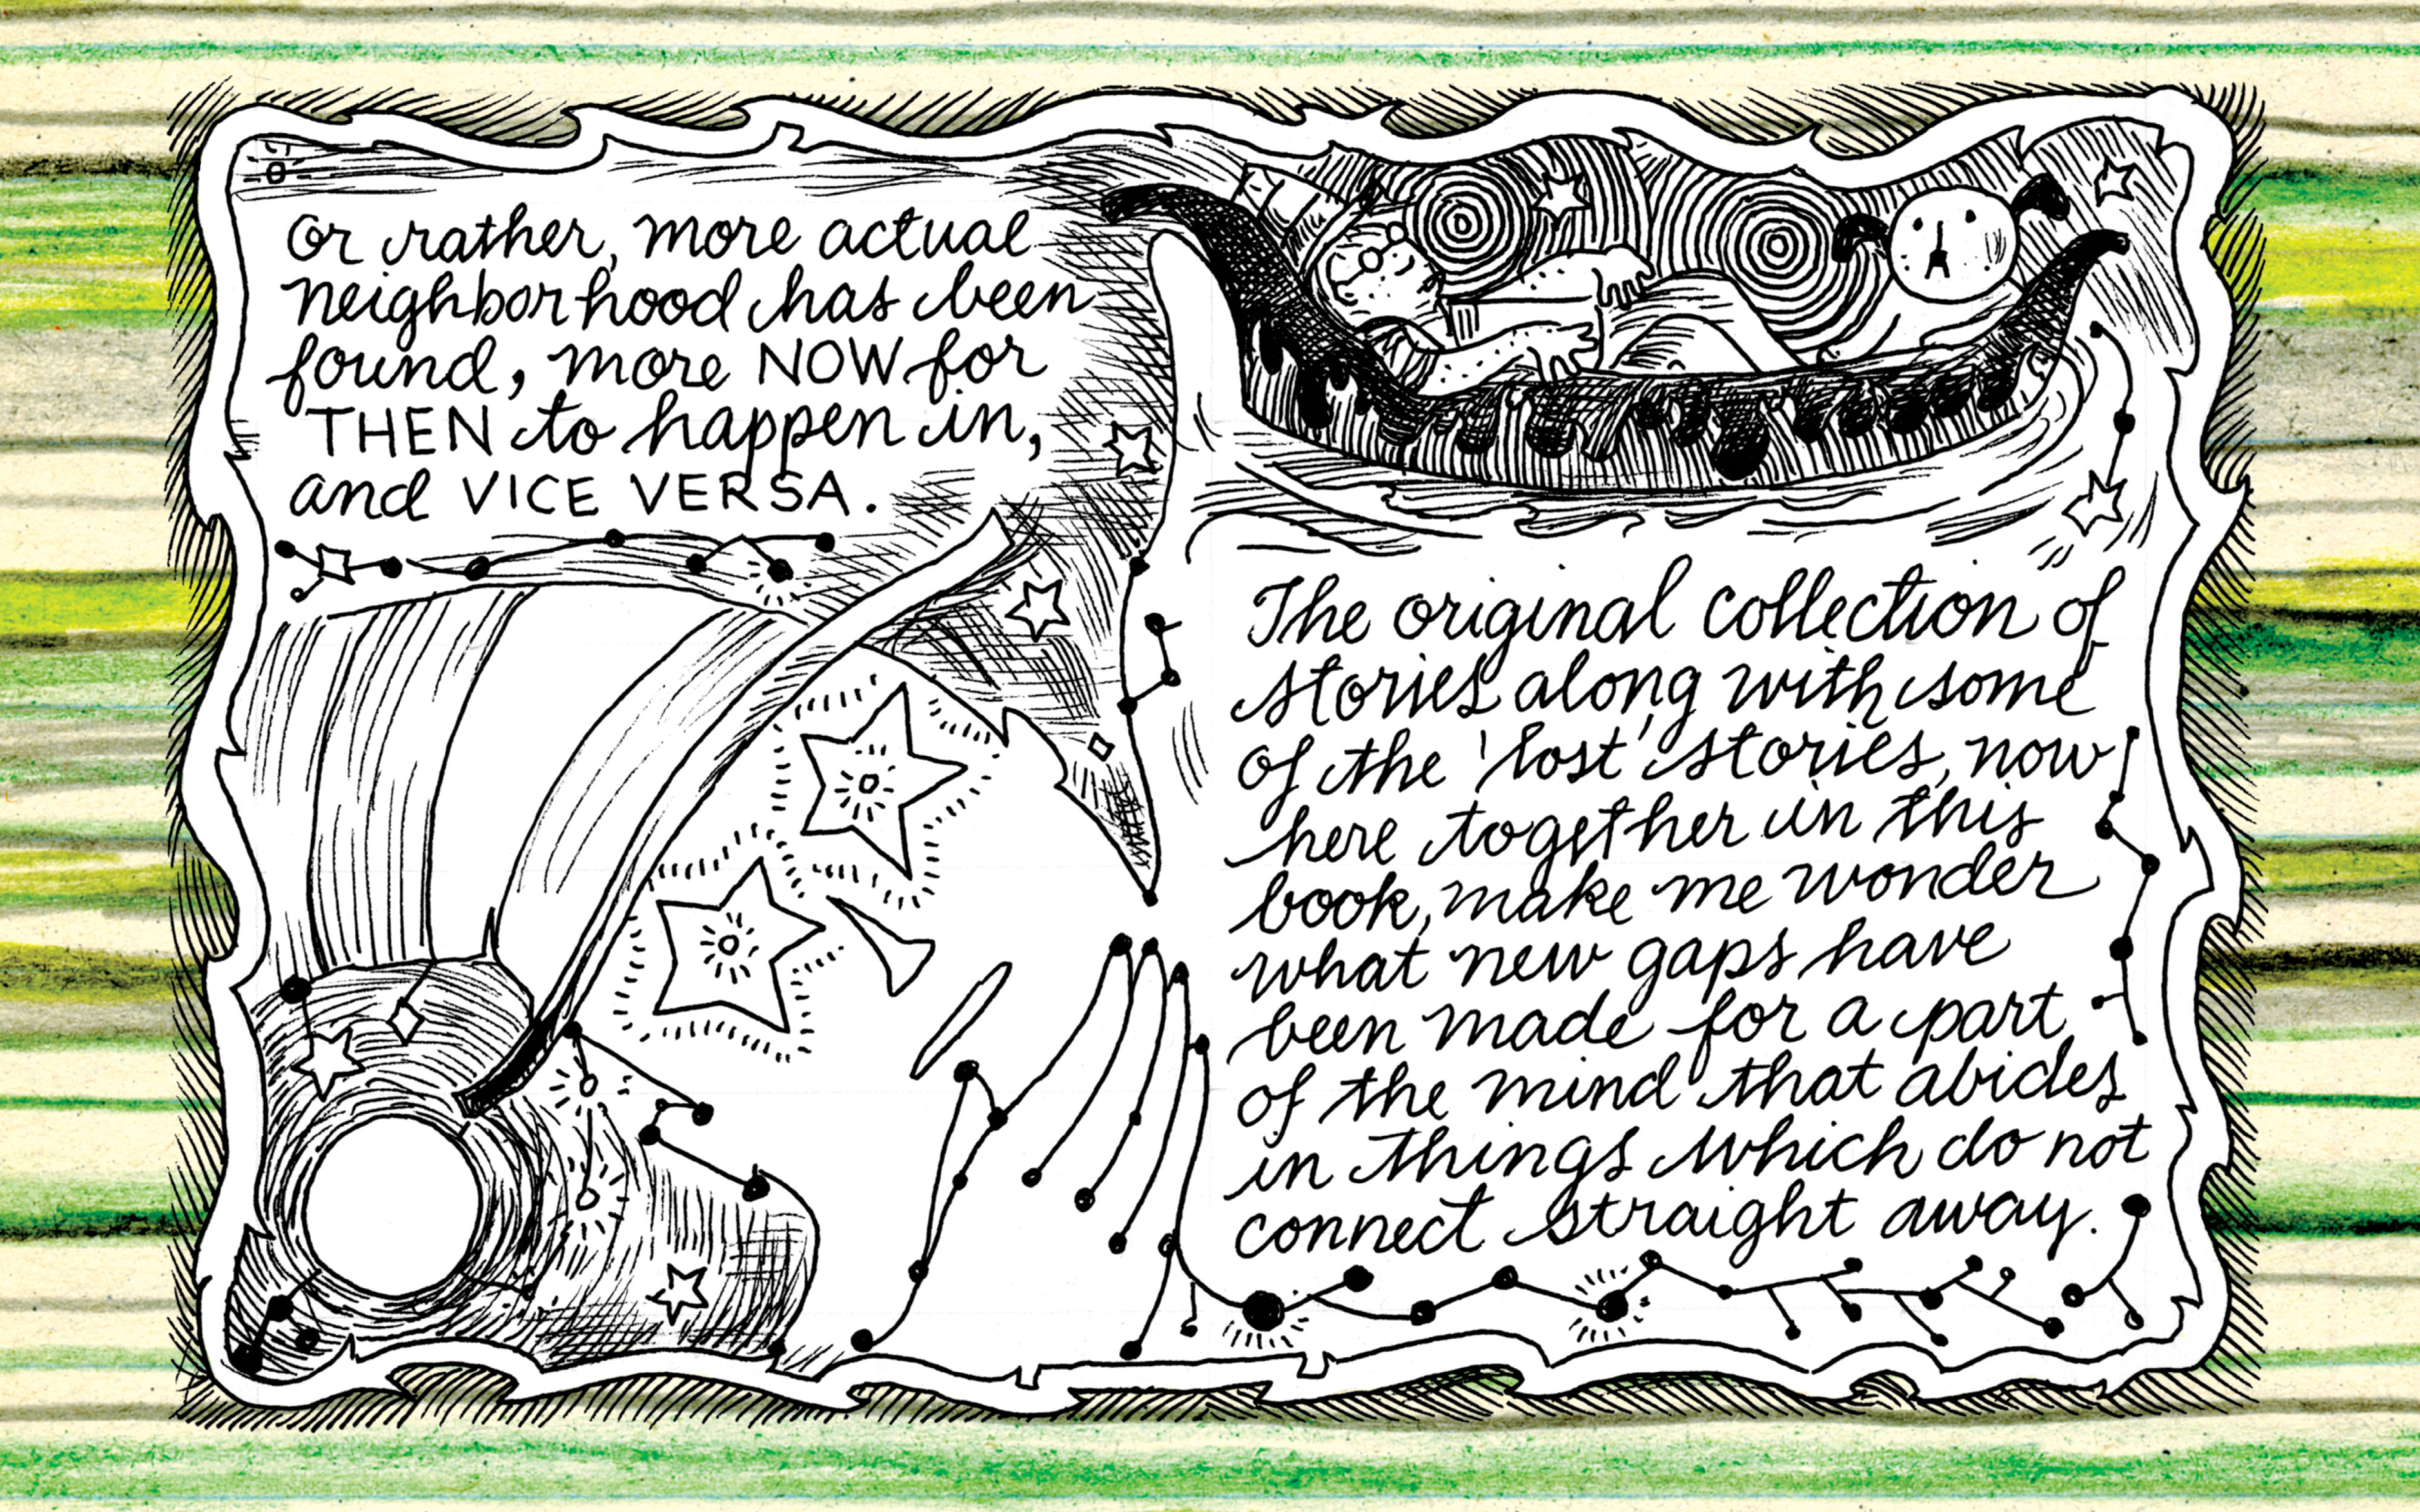 or rather, more actual
neighborhood has been
found, more NOW for
THEN to happen in,
and VICE VERSA.
The original collection of
stories along with some
of the 'lost' stories, now
here together in this
book, make me wonder
what new gaps have
been made for a part
of the mind that abides
in things which do not
connect straight away.